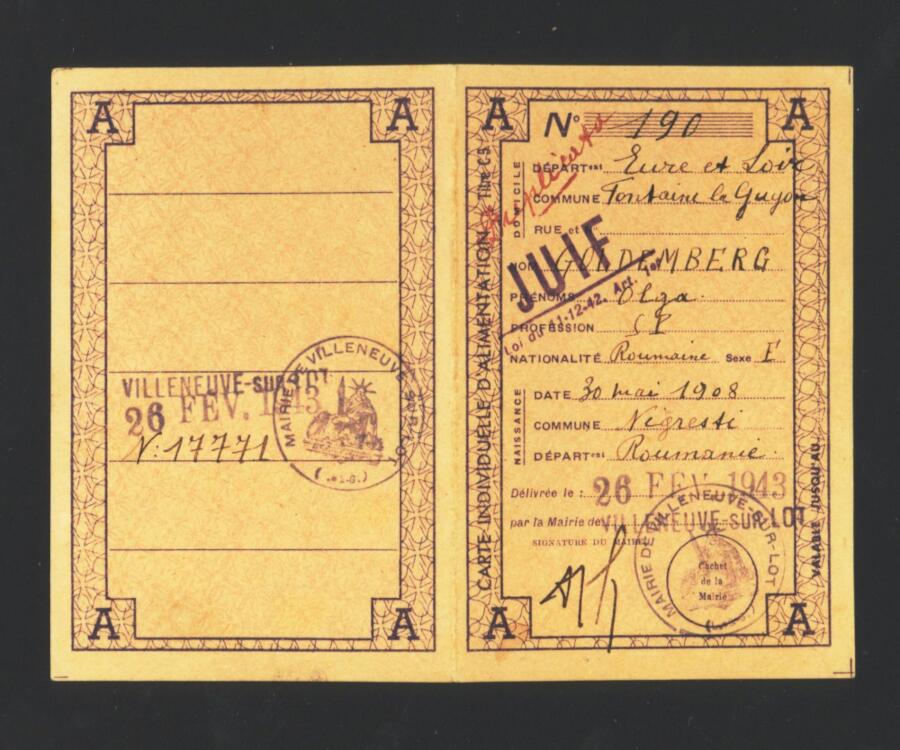 A A
VILLENEUVE-SUR-LOT
26 FEV. 1943
N: 17771
MAIRIE DE VILLENEUVE SUR LOT
A A
CARTE INDIVIDUELLE D'ALIMENTATION Titre CS
A A
N° 190
Duplicata
DOMICILE
DÉPART Eure et Loir
COMMUNE Fontaine la Guyon
RUE et
JUIF
Loi du 11-12-42. Art. 1er
NOM GOLDEMBERG
PRÉNOMS Olga
PROFESSION SP
NATIONALITÉ Roumaine Sexe F
NAISSANCE
DATE 30 mai 1908
COMMUNE Négresti
DÉPART Roumanie
Délivrée le : 26 FEV. 1943
par la Mairie de VILLENEUVE-SUR-LOT
SIGNATURE DU MAIRE
MAIRIE DE VILLENEUVE-SUR-LOT
Cachet
de la
Mairie
A A
VALABLE JUSQU'AU